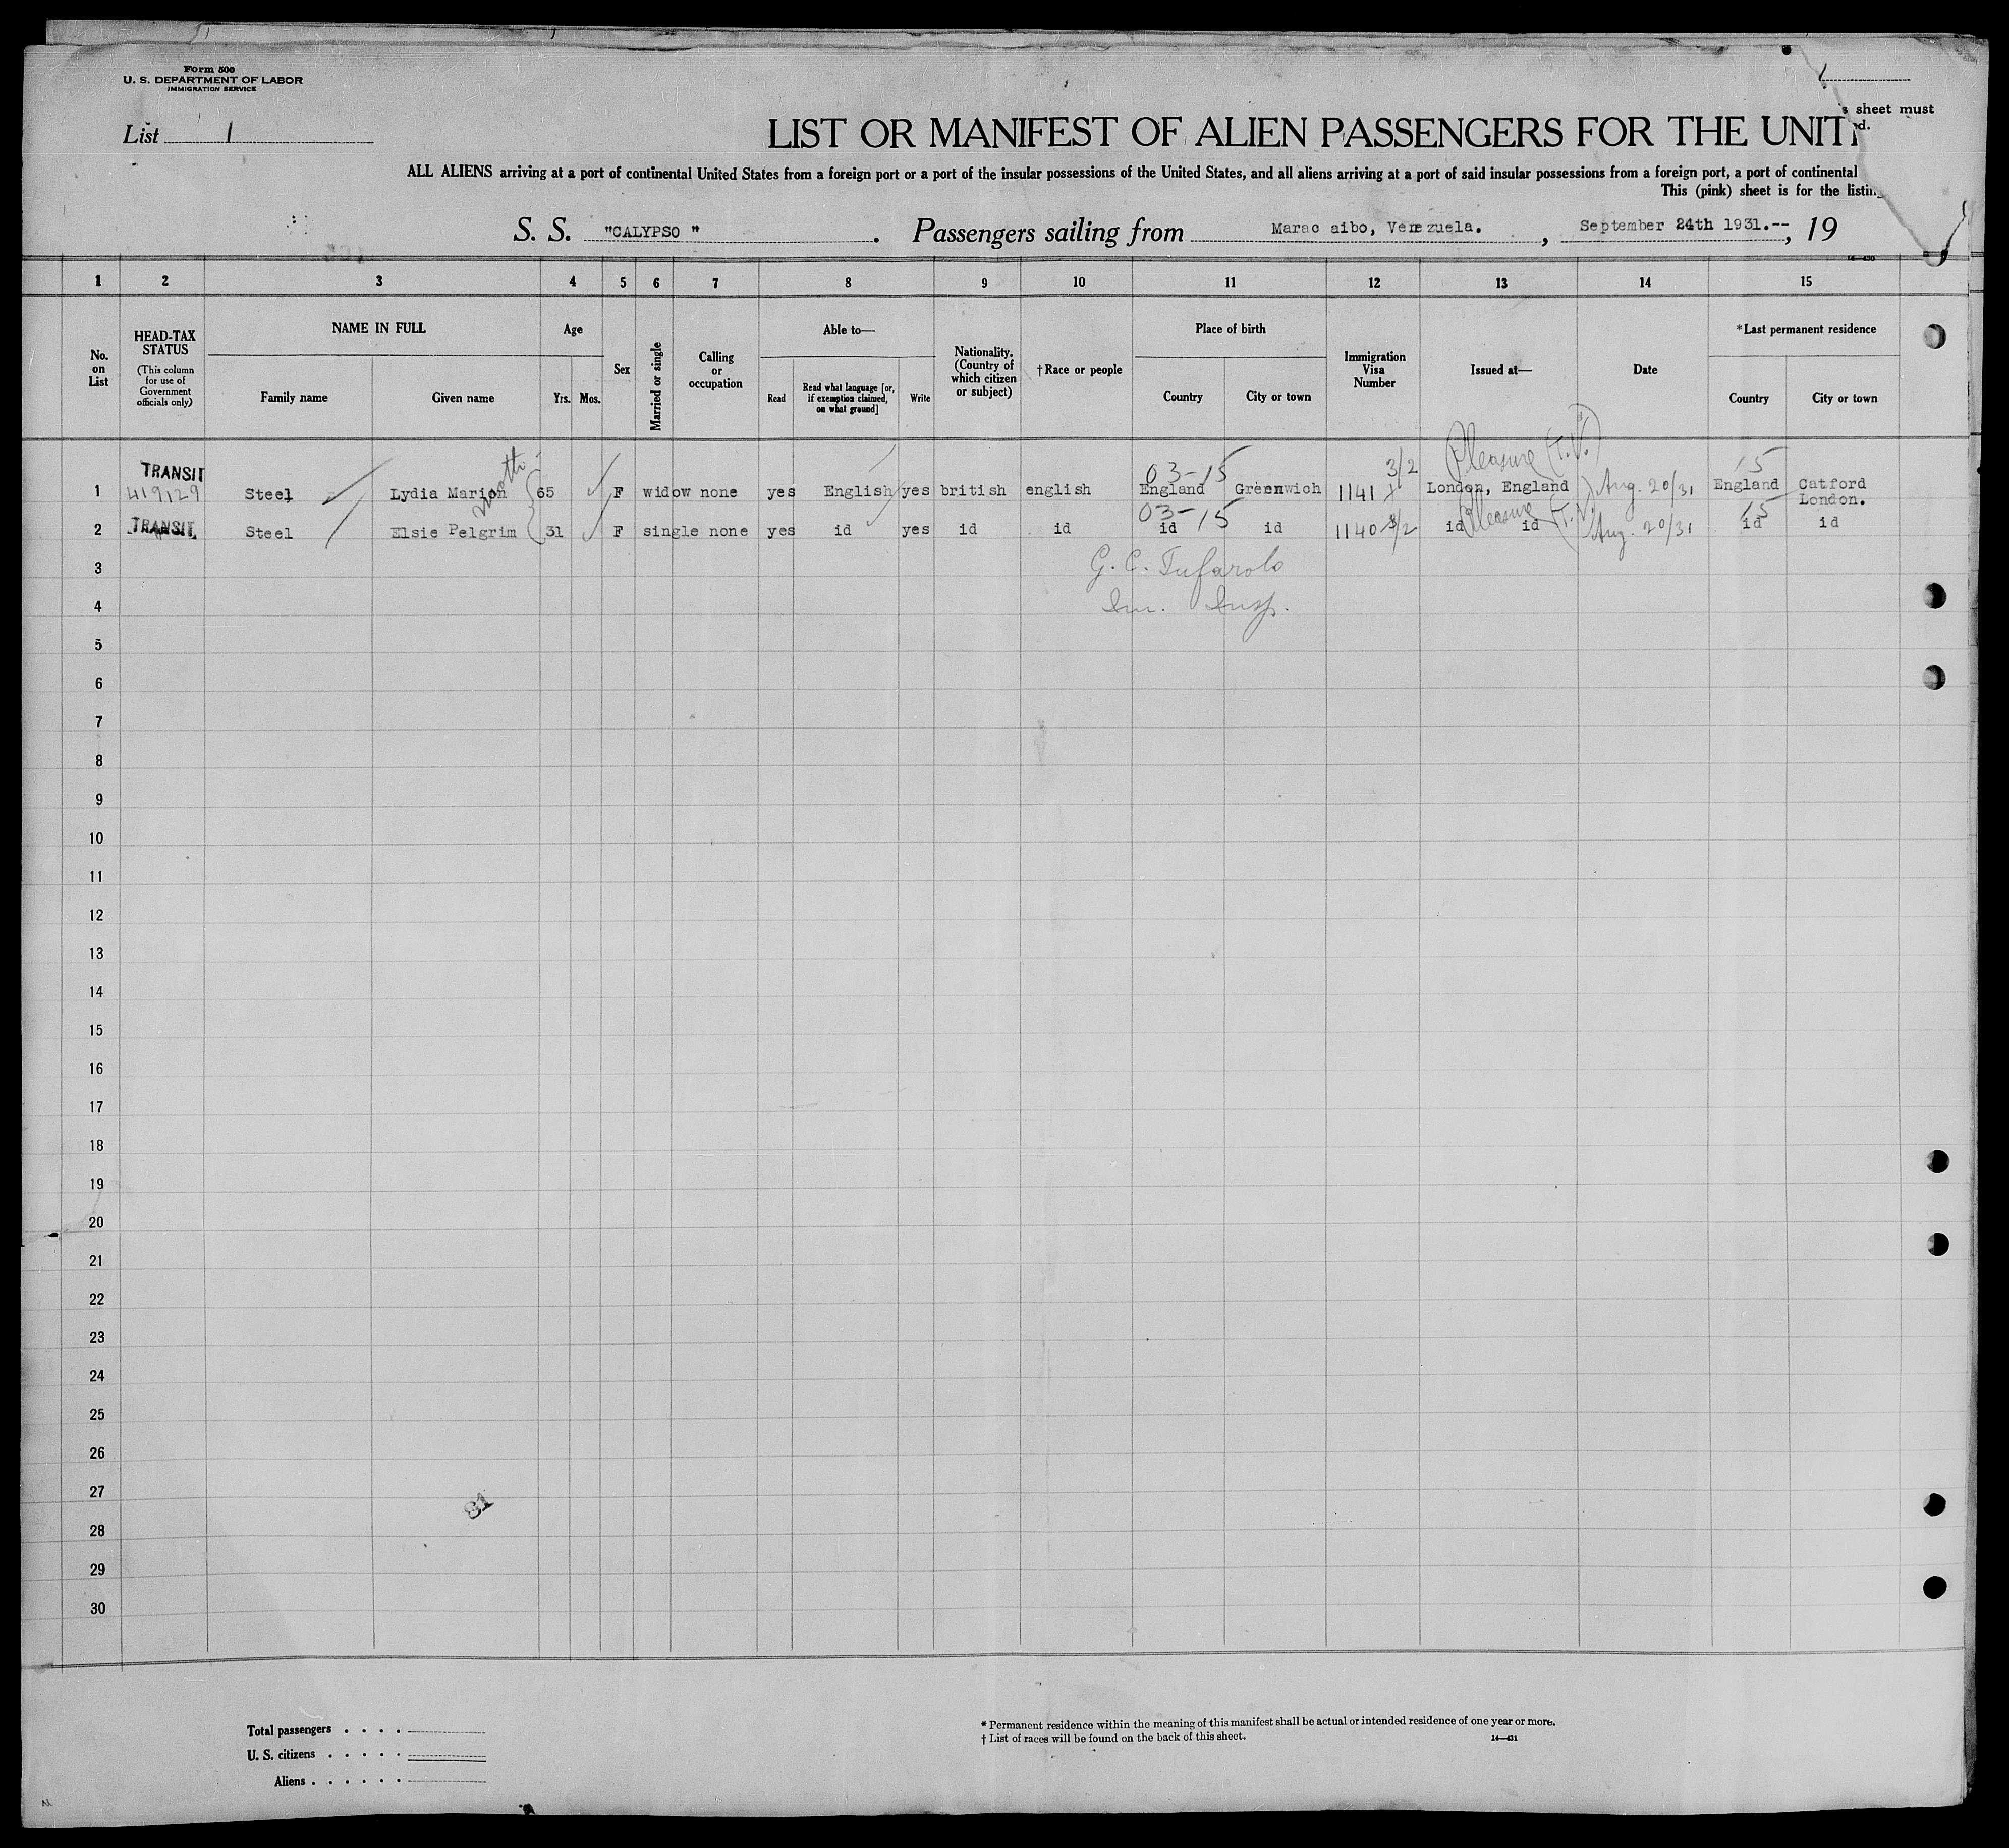 Form 500
U. S. DEPARTMENT OF LABOR
IMMIGRATION SERVICE
List 1
s sheet must
d.
LIST OR MANIFEST OF ALIEN PASSENGERS FOR THE UNIT
ALL ALIENS arriving at a port of continental United States from a foreign port or a port of the insular possessions of the United States, and all aliens arriving at a port of said insular possessions from a foreign port, a port of continental
This (pink) sheet is for the listin
S. S. "CALYPSO ". Passengers sailing from Marac aibo, Venezuela. , September 24th 1931.-- , 19
14—430
1 2 3 4 5 6 7 8 9 10 11 12 13 14 15
No. on List
HEAD-TAX STATUS
(This column for use of Government officials only)
NAME IN FULL
Family name Given name
Age
Yrs. Mos.
Sex
Married or single
Calling or occupation
Able to—
Read
Read what language [or, if exemption claimed, on what ground]
Write
Nationality. (Country of which citizen or subject)
†Race or people
Place of birth
Country City or town
Immigration Visa Number
Issued at—
Date
*Last permanent residence
Country City or town
TRANSIT 03-15 3/2 Pleasure (T.V.) 15
1 419129 Steel Lydia Marion moth- 65 F widow none yes English yes british english England Greenwich 1141 London, England Aug. 20/31 England Catford London.
03-15 Pleasure (T.V.) 15
2 TRANSIT Steel Elsie Pelgrim 31 F single none yes id yes id id id id 1140 3/2 id id Aug. 20/31 id id
3 G. C. Tufarolo
4 Im. Insp.
5
6
7
8
9
10
11
12
13
14
15
16
17
18
19
20
21
22
23
24
25
26
27
31
28
29
30
Total passengers . . . .
U. S. citizens . . . . .
Aliens . . . . . .
* Permanent residence within the meaning of this manifest shall be actual or intended residence of one year or more.
† List of races will be found on the back of this sheet. 14—431